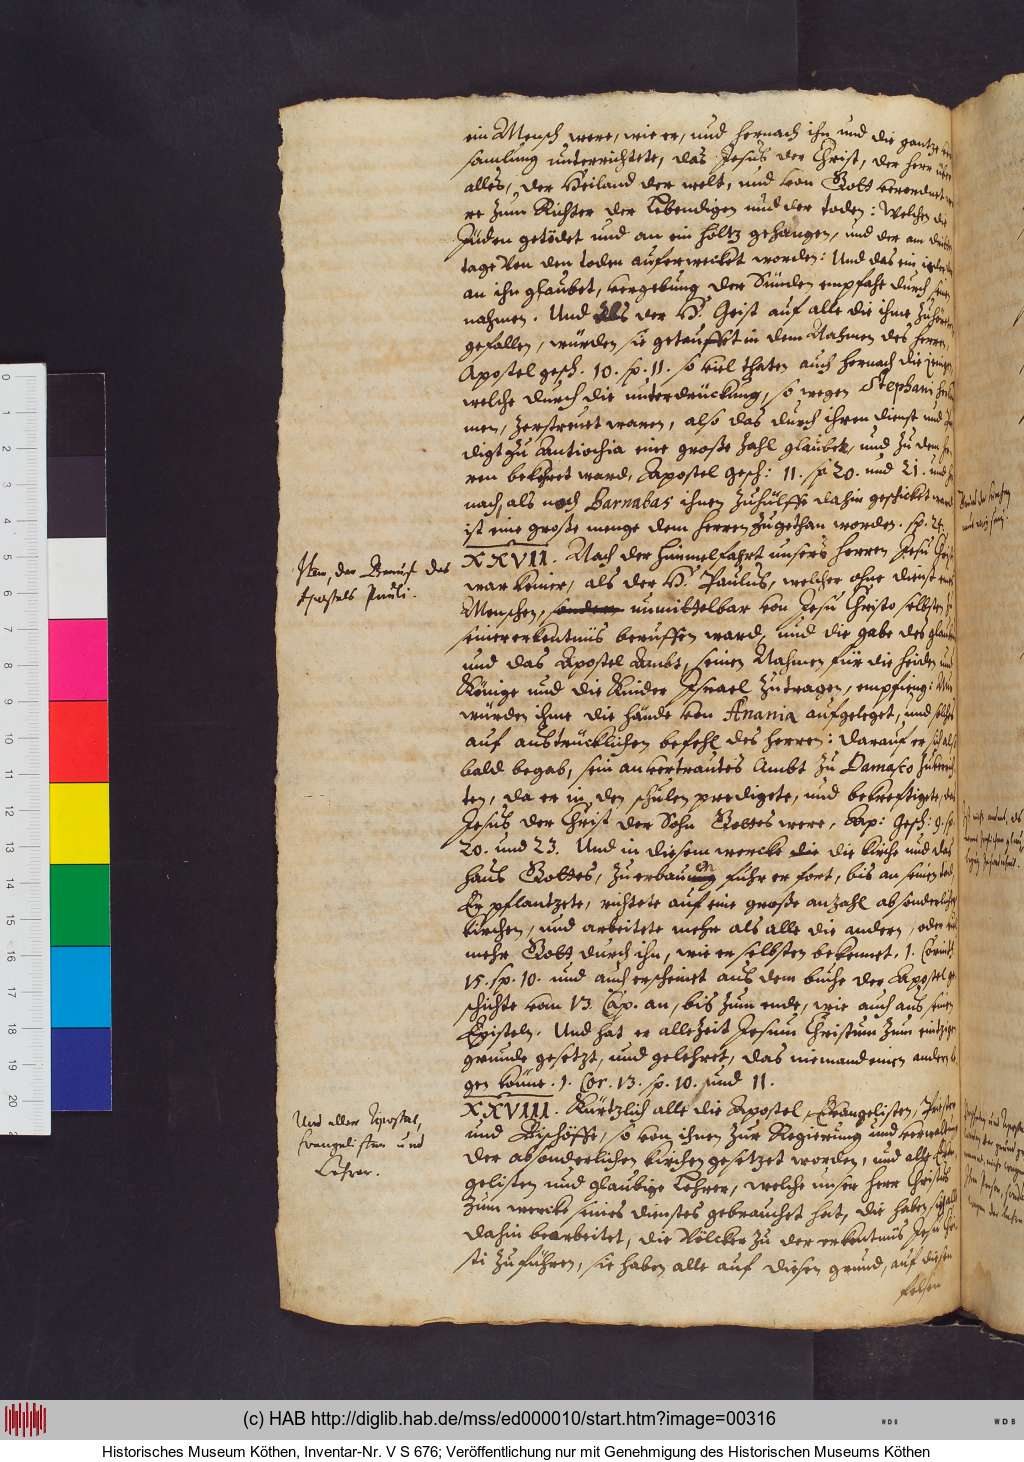 ein Mensch were, wie er, und hernach ihn und die gantze
samlung unterrichtete, das Jesus der Christ, der Herr über
alles, der Heiland der welt, und von Gott verordnet
re zum Richter der Lebendigen und der toden: Welchen die
Jüden getödet und an ein holtz gehangen, und der am dritten
tage von den toden auferwecket worden: Und das ein ieder
an ihn glaubet, vergebung der Sünden empfahe durch seinen
nahmen. Und als der H. Geist auf alle die ihme zuhöreten
gefallen, würden sie getaufft in dem Nahmen des herren,
Apostel gesch. 10. sp. 11. so viel thaten auch hernach die
welche durch die unterdrückung, so wegen Stephani
men, zerstreuet waren, also das durch ihren dienst und
digt zu Antiochia eine große zahl glaubet, und zu dem
ren bekehret ward, Apostel gesch: 11. sp. 20. und 21. und
nach, als noch Barnabas ihnen zuhülffe dahin geschicket ward
ist eine große menge dem herren zugethan worden. sp. 24.
Item, der Beruf des
Apostels Pauli.
XXVII. Nach der himmelfahrt unsers herren Jesu
war keiner, als der H. Paulus, welcher ohne dienst eines
Menschen, sondern unmittelbar von Jesu Christo selbsten zu
seiner erkentnüs beruffen ward, und die gabe des glaubens
und das Apostel Ambt, seinen Nahmen für die heiden und
Könige und die Kinder Israel zutragen, empfieng: Nun
würden ihme die hände von Anania aufgeleget, und solches
auf austrücklichen befehl des herren: darauf er sich als
bald begab, sein anvertrautes Ambt zu Damasco zuverrich
ten, da er in den schulen predigete, und bekreftigete, das
Jesus der Christ der Sohn Gottes were, Ap: Gesch: 9. sp.
20. und 23. Und in diesem wercke die die kirche und das
haus Gottes, zuerbauen fuhr er fort, bis an seinen tod,
Er pflantzete, richtete auf eine große anzahl absonderlicher
kirchen, und arbeitete mehr als alle die andern, oder
mehr Gott durch ihn, wie er selbsten bekennet. 1. Corinth.
15. sp. 10. und auch erscheinet aus dem buche der Apostel ge
schichte vom 13. Cap. an, bis zum ende, wie auch aus seinen
Episteln. Und hat er allezeit Jesum Christum zum eintzigen
grunde gesetzt, und gelehret, das niemand einen andern
gen könne. 1. Cor. 13. sp. 10. und 11.
Und aller Apostel,
Evangelisten und
Lehrer.
XXVIII. Kürtzlich alle die Apostel, Evangelisten, Priester
und Bischöffe, so von ihnen zur Regierung und verwaltung
der absonderlichen kirchen gesetzet worden, und alle
gelisten und glaubige Lehrer, welche unser herr Christus
zum wercke seines dienstes gebrauchet hat, die haben
dahin bearbeitet, die Völcker zu der erkentnüs Jesu Chri
sti zuführen, sie haben alle auf diesen grund, auf diesen
felsen
(c) HAB http://diglib.hab.de/mss/ed000010/start.htm?image=00316
WDB
Historisches Museum Köthen, Inventar-Nr. V S 676; Veröffentlichung nur mit Genehmigung des Historischen Museums Köthen